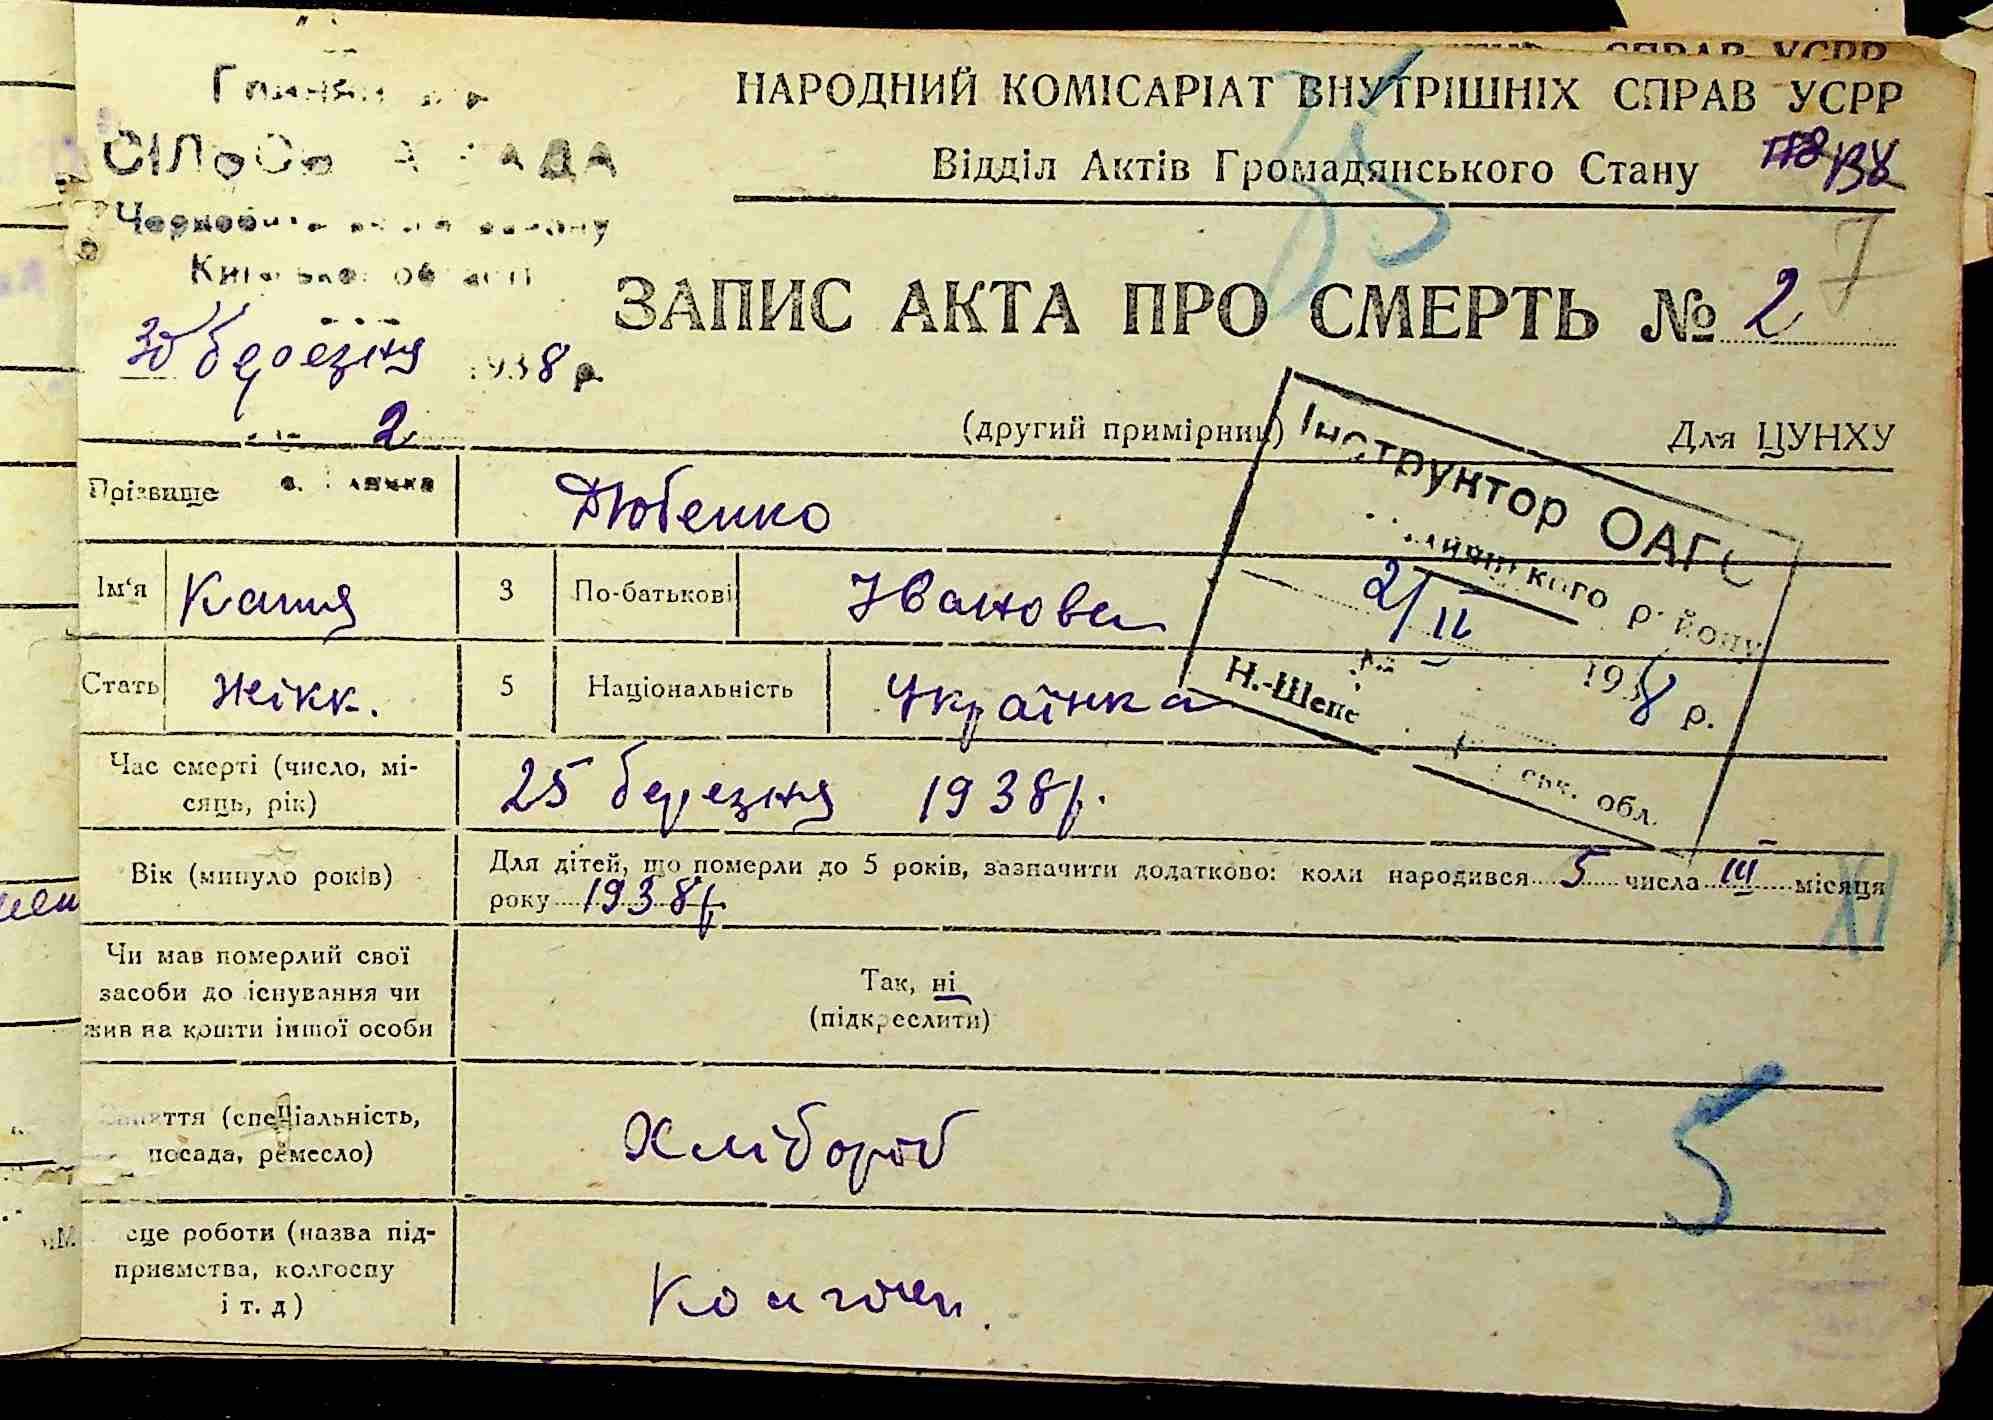 НАРОДНИЙ КОМІСАРІАТ ВНУТРІШНІХ СПРАВ УСРР
Відділ Актів Громадянського Стану
СІЛЬСЬКА РАДА
Київської області
ЗАПИС АКТА ПРО СМЕРТЬ № 2
30 березня 1938 р.
2
(другий примірник) Для ЦУНХУ
Інструктор ОАГС
району
2/II 1938 р.
Н.-Шепе
обл.
Прізвище Дюбенко
Ім'я Катя 3 По-батькові Іванова
Стать жінк. 5 Національність Українка
Час смерті (число, мі-
сяць, рік) 25 березня 1938 р.
Вік (минуло років) Для дітей, що померли до 5 років, зазначити додатково: коли народився 5 числа III місяця
року 1938 р.
Чи мав померлий свої
засоби до існування чи
жив на кошти іншої особи
Так, ні
(підкреслити)
Заняття (спеціальність,
посада, ремесло) Хлібороб
Місце роботи (назва під-
приємства, колгоспу
і т. д) Колгосп.
5